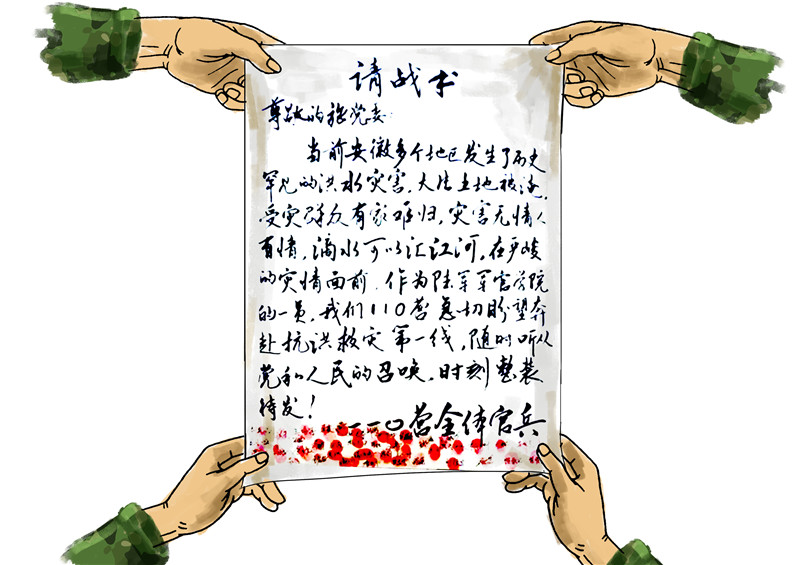 请战书
尊敬的旅党委:
当前安徽多个地区发生了历史
罕见的洪水灾害,大片土地被淹,
受灾群众有家难归,灾害无情人
有情,滴水可以汇江河,在严峻
的灾情面前,作为陆军军官学院
的一员,我们110营急切盼望奔
赴抗洪救灾第一线,随时听从
党和人民的召唤,时刻整装
待发!
一一〇营全体官兵